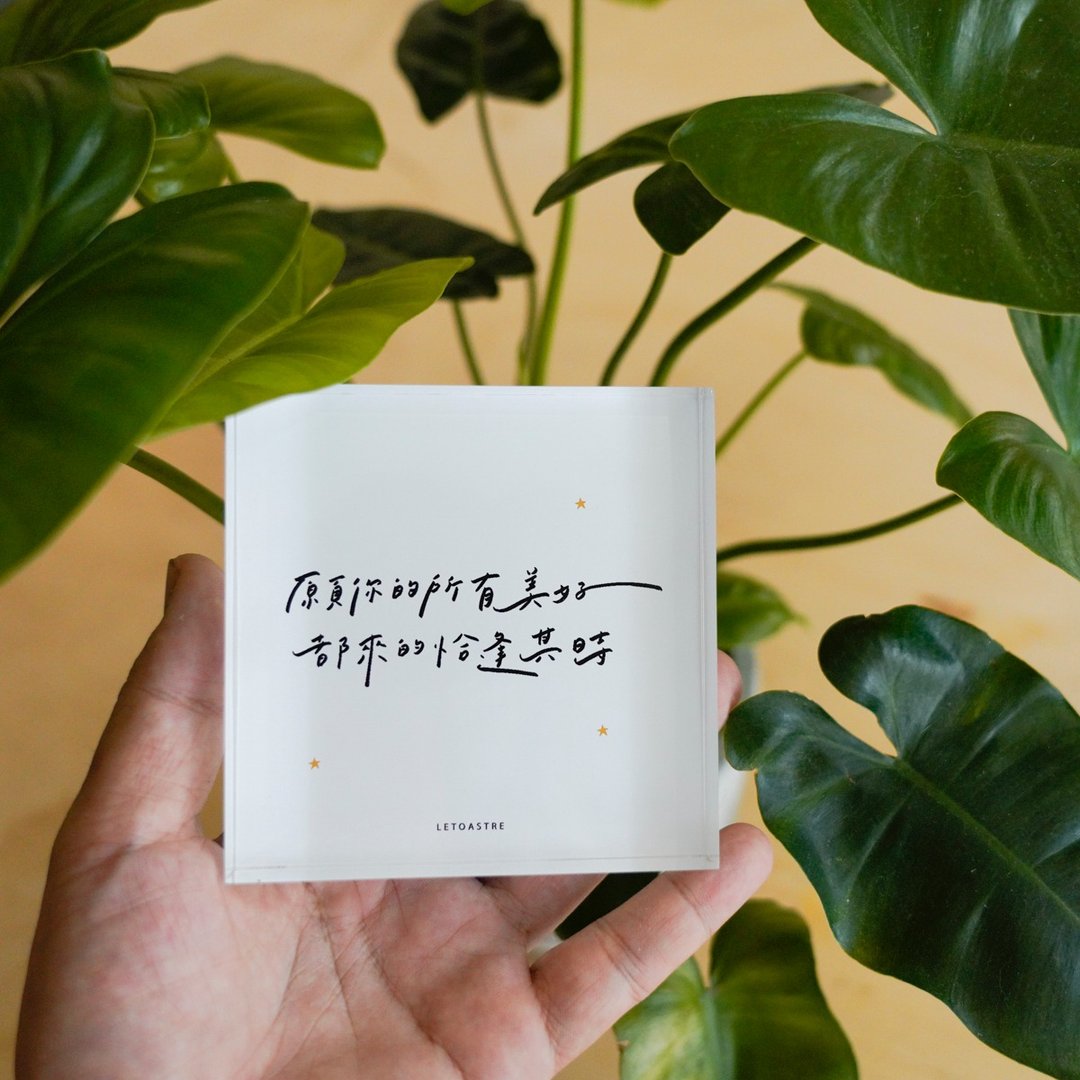 願你的所有美好
都來的恰逢其時
LETOASTRE